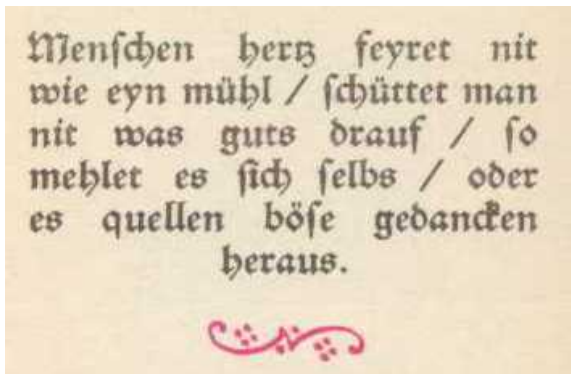 Menſchen hertz feyret nit
wie eyn mühl / ſchüttet man
nit was guts drauf / ſo
mehlet es ſich ſelbs / oder
es quellen böſe gedancken
heraus.